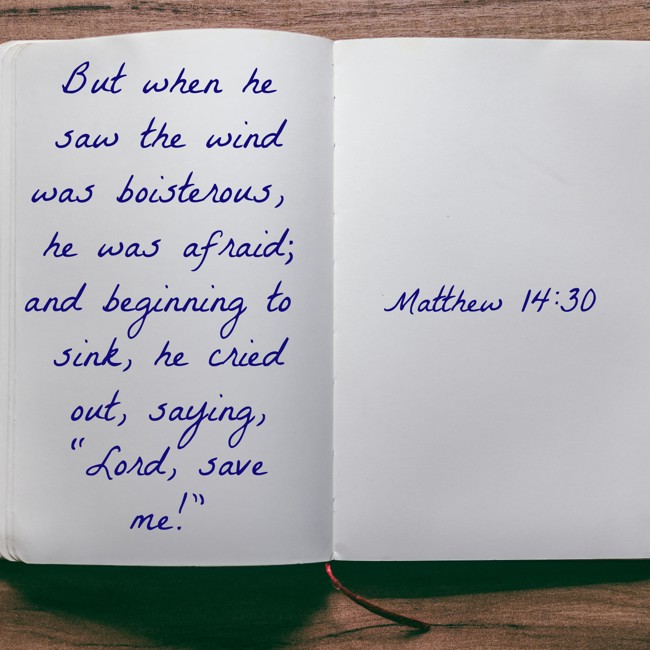 But when he
saw the wind
was boisterous,
he was afraid;
and beginning to
sink, he cried
out, saying,
"Lord, save
me!"
Matthew 14:30